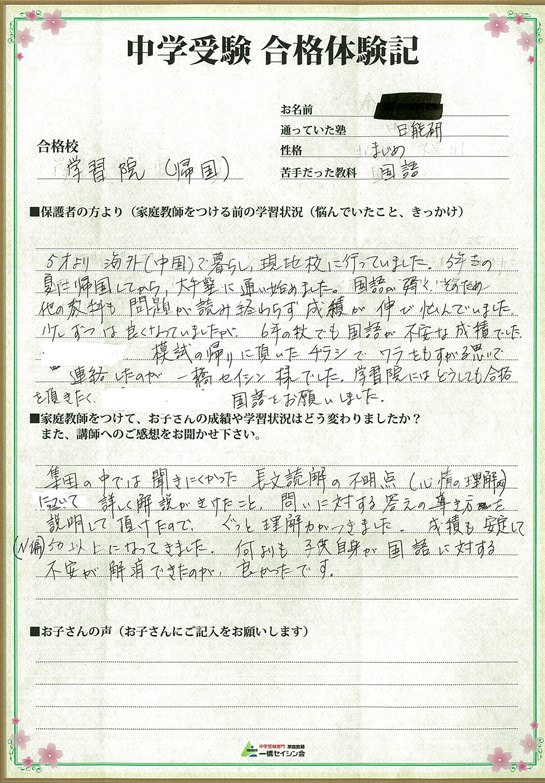 中学受験 合格体験記
お名前
通っていた塾 日能研
合格校
性格 まじめ
学習院(帰国)
苦手だった教科 国語
■保護者の方より(家庭教師をつける前の学習状況(悩んでいたこと、きっかけ)
5才より 海外(中国)で暮らし、現地校に行っていました。5年生の
夏に帰国してから、大手塾に通い始めました。国語が弱く、そのため
他の教科も 問題が読み終わらず 成績が 伸び悩んでいました。
少しずつは良くなっていましたが、6年の秋でも国語が不安な成積でした。
模試の帰りに頂いた チラシで ワラをもすがる思いで
連絡したのが 一橋セイシン 様でした。学習院にはどうしても合格
を頂きたく、 国語をお願いしました。
■家庭教師をつけて、お子さんの成績や学習状況はどう変わりましたか?
また、講師へのご感想をお聞かせ下さい。
集団の中では 聞きにくかった 長文読解の不明点(心情の理解)
について 詳しく解説がきけたこと、問いに対する答えの導き方を
説明して頂けたので、ぐっと理解力がつきました。成積も 安定して
(N偏)50以上になってきました。何よりも 子供自身が国語に対する
不安が解消できたのが、良かったです。
■お子さんの声(お子さんにご記入をお願いします)
中学受験専門 家庭教師
一橋セイシン会